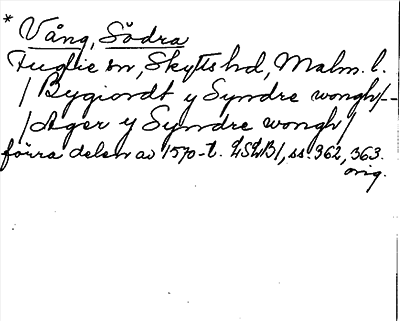 * Vång, Södra
Fuglie sn, Skytts hd, Malm. l.
/Bygiordt y Syndre wongh/--
/Ager y Syndre wongh/
förra delen av 1570-t. LSLB1, ss. 362, 363.
orig.